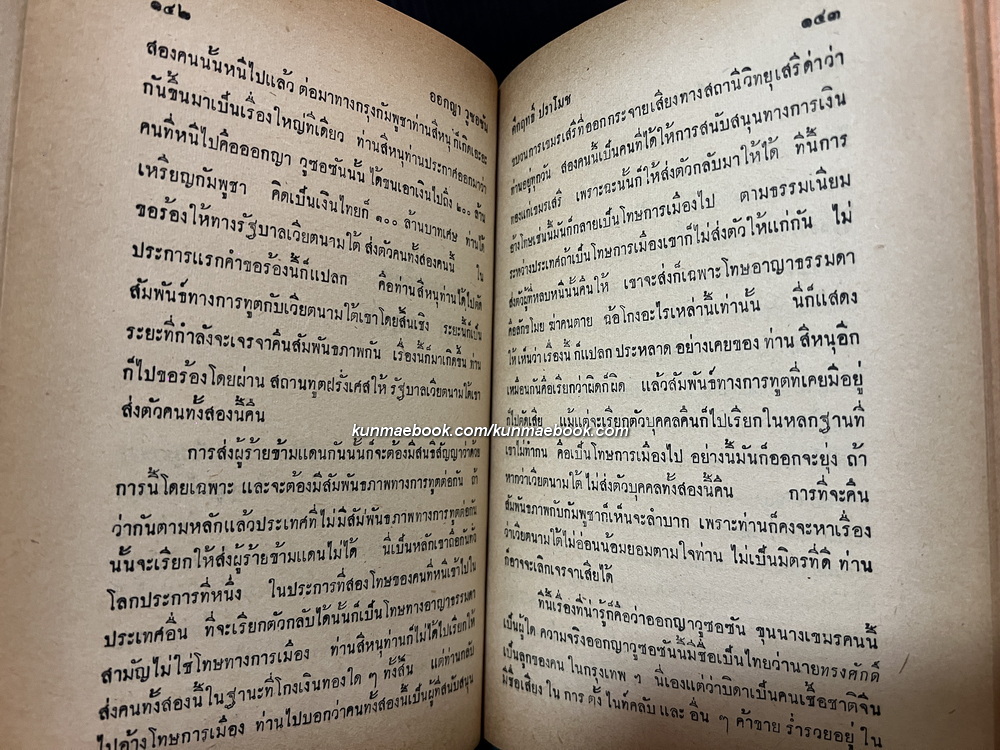 ๑๔๒
ออกญา วูซอซัน
สองคนนั้นหนีไปแล้ว ต่อมาทางกรุงกัมพูชาท่านสีหนุ ก็เกิดเอะอะ
กันขึ้นมาเป็นเรื่องใหญ่ทีเดียว ท่านสีหนุท่านประกาศออกมาว่า
คนที่หนีไปคือออกญา วูซอซันนั้น ได้ขนเอาเงินไปถึง ๒๐๐ ล้าน
เหรียญกัมพูชา คิดเป็นเงินไทยก็ ๑๐๐ ล้านบาทเศษ ท่านได้
ขอร้องให้ทางรัฐบาลเวียตนามใต้ ส่งตัวคนทั้งสองคนนี้ ใน
ประการแรกคำขอร้องนี้ก็แปลก คือท่านสีหนุท่านได้ไปตัด
สัมพันธ์ทางการทูตกับเวียตนามใต้เขาโดยสิ้นเชิง ระยะนี้ก็เป็น
ระยะที่กำลังจะเจรจาคืนสัมพันธภาพกัน เรื่องนี้ก็มาเกิดขึ้น ท่าน
ก็ไปขอร้องโดยผ่าน สถานทูตฝรั่งเศสให้ รัฐบาลเวียตนามใต้เขา
ส่งตัวคนทั้งสองนี้คืน
การส่งผู้ร้ายข้ามแดนกันนั้นก็จะต้องมีสนธิสัญญาว่าด้วย
การนี้โดยเฉพาะ และจะต้องมีสัมพันธภาพทางการทูตต่อกัน ถ้า
ว่ากันตามหลักแล้วประเทศที่ไม่มีสัมพันธภาพทางการทูตต่อกัน
นั้นจะเรียกให้ส่งผู้ร้ายข้ามแดนไม่ได้ นี่เป็นหลักเขาถือกันทั้ง
โลกประการที่หนึ่ง ในประการที่สองโทษของคนที่หนีเข้าไปใน
ประเทศอื่น ที่จะเรียกตัวกลับได้นั้นก็เป็นโทษทางอาญาธรรมดา
สามัญไม่ใช่โทษทางการเมือง ท่านสีหนุท่านก็ไม่ได้ไปเรียกให้
ส่งคนทั้งสองนี้ในฐานะที่โกงเงินทองใด ๆ ทั้งสิ้น แต่ท่านกลับ
ไปอ้างโทษการเมือง ท่านไปบอกว่าคนทั้งสองนี้เป็นผู้ที่สนับสนุน
๑๔๓
คึกฤทธิ์ ปราโมช
ขบวนการเขมรเสรีที่ออกกระจายเสียงทางสถานีวิทยุเสรีด่าว่า
ท่านอยู่ทุกวัน สองคนนี้เป็นคนที่ได้ให้การสนับสนุนทางการเงิน
ทองแก่เขมรเสรี เพราะฉะนั้นก็ให้ส่งตัวกลับมาให้ได้ ทีนี้การ
อ้างโทษเช่นนี้มันก็กลายเป็นโทษการเมืองไป ตามธรรมเนียม
ระหว่างประเทศถ้าเป็นโทษการเมืองเขาก็ไม่ส่งตัวให้แก่กัน ไม่
ส่งตัวผู้ที่หลบหนีนั้นคืนให้ เขาจะส่งก็เฉพาะโทษอาญาธรรมดา
คือลักขโมย ฆ่าคนตาย ฉ้อโกงอะไรเหล่านี้เท่านั้น นี่ก็แสดง
ให้เห็นว่า เรื่องนี้ ก็แปลก ประหลาด อย่างเคยของ ท่าน สีหนุอีก
เหมือนกันคือเรียกว่าผิดก็ผิด แล้วสัมพันธ์ทางการทูตที่เคยมีอยู่
ก็ไปตัดเสีย แม้แต่จะเรียกตัวบุคคลคืนก็ไปเรียกในหลกฐานที่
เขาไม่ทำกน คือเป็นโทษการเมืองไป อย่างนี้มันก็ออกจะยุ่ง ถ้า
หากว่าเวียตนามใต้ ไม่ส่งตัวบุคคลทั้งสองนี้คืน การที่จะคืน
สัมพันธภาพกับกัมพูชาก็เห็นจะลำบาก เพราะท่านก็คงจะหาเรื่อง
ว่าเวียตนามใต้ไม่อ่อนน้อมยอมตามใจท่าน ไม่เป็นมิตรที่ดี ท่าน
ก็อาจจะเลิกเจรจาเสียได้
ทีนี้เรื่องที่น่ารู้ก็คือว่าออกญาวูซอซัน ขุนนางเขมรคนนี้
เป็นผู้ใด ความจริงออกญาวูซอซันนี้มีชื่อเป็นไทยว่านายทรงศักดิ์
เป็นลูกของคน ในกรุงเทพ ฯ นี่เองแต่ว่าบิดาเป็นคนเชื้อชาติจีน
มีชื่อเสียง ใน การ ตั้ง ไนท์คลับ และ อื่น ๆ ค้าขาย ร่ำรวยอยู่ ใน
kunmaebook.com/kunmaebook.com